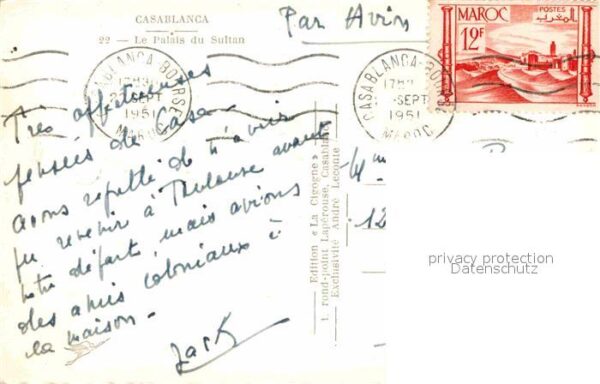 CASABLANCA
22 — Le Palais du Sultan
Par Avion
MAROC
POSTES
المغرب
12F
CASABLANCA-BOURSE
17H
SEPT
1951
MAROC
CASABLANCA-BO
17H
SEPT
1951
MAROC
Très affectueuses
pensées de Casa -
avons regretté de n'avoir
pu revenir à Toulouse avant
notre départ mais avions
des amis coloniaux à
la maison -
Jack
Edition « La Cigogne »
1, rond-point Lapérouse, Casablanca
Exclusivité André Leconte
12
privacy protection
Datenschutz